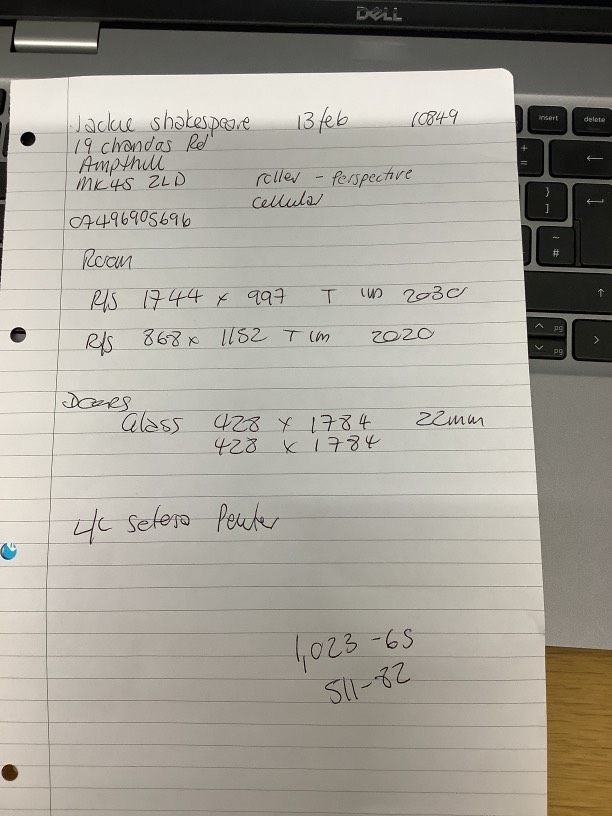 DELL
insert
delete
Jackie Shakespeare 13 feb 10849
19 chandas Rd
Ampthill
MK45 2LD roller - Perspective
cellular
07496905696
Room
R/S 1744 x 997 T 2030
R/S 868 x 1152 T 2020
Doors
Glass 428 x 1784 22mm
428 x 1784
L/C Setoso Pewter
1,023-65
511-82
pg
pg